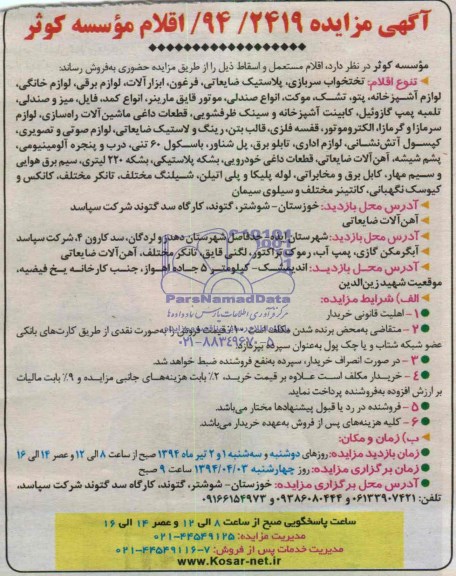 آگهی مزایده ۲۴۱۹/ ۹۴/ اقلام مؤسسه کوثر
مؤسسه کوثر در نظر دارد، اقلام مستعمل و اسقاط ذیل را از طریق مزایده حضوری به‌فروش رساند:
تنوع اقلام: تختخواب سربازی، پلاستیک ضایعاتی، فرغون، ابزار آلات، لوازم برقی، لوازم خانگی،
لوازم آشپزخانه، پتو، تشک، موکت، انواع صندلی، موتور قایق مارینر، انواع کمد، فایل، میز و صندلی،
تلمبه پمپ گازوئیل، کابینت آشپزخانه و سینک ظرفشویی، قطعات داغی ماشین‌آلات راه‌سازی، لوازم
سرمازا و گرمازا، الکتروموتور، قفسه فلزی، قالب بتن، رینگ و لاستیک ضایعاتی، لوازم صوتی و تصویری،
کپسول آتش‌نشانی، لوازم اداری، تابلو برق، پل شناور، باسکول ۶۰ تنی، درب و پنجره آلومینیومی،
پشم شیشه، آهن‌آلات ضایعاتی، قطعات داغی خودرویی، بشکه پلاستیکی، بشکه ۲۲۰ لیتری، سیم برق هوایی
و سیم مهار، کابل برق و مخابراتی، لوله پلیکا و پلی اتیلن، شیلنگ مختلف، تانکر مختلف، کانکس و
کیوسک نگهبانی، کانتینر مختلف و سیلوی سیمان
آدرس محل بازدید: خوزستان – شوشتر، گتوند، کارگاه سد گتوند شرکت سپاسد
آهن‌آلات ضایعاتی
آدرس محل بازدید: شهرستان ایذه – حدفاصل شهرستان دهدز و لردگان، سد کارون ۴، شرکت سپاسد
آبگرمکن گازی، پمپ آب، رموک تراکتور، لگنی قایق، تانکر مختلف، آهن آلات ضایعاتی
آدرس محل بازدید: اندیمشک – کیلومتر ۵ جاده اهواز، جنب کارخانه یخ فیضیه،
موقعیت شهید زین‌الدین
الف) شرایط مزایده:
۱ – اهلیت قانونی خریدار
۲ – متقاضی به‌محض برنده شدن مکلف است ۱۰٪ قیمت فروش را به‌صورت نقدی از طریق کارت‌های بانکی
عضو شبکه شتاب و یا چک پول به‌عنوان سپرده بپردازد.
۳ – در صورت انصراف خریدار، سپرده به‌نفع فروشنده ضبط خواهد شد.
۴ – خریدار مکلف است علاوه بر قیمت خرید، ۲٪ بابت هزینه‌های جانبی مزایده و ۹٪ بابت مالیات
بر ارزش افزوده به‌فروشنده پرداخت نماید.
۵ – فروشنده در رد یا قبول پیشنهادها مختار می‌باشد.
۶ – کلیه هزینه‌های پس از فروش به‌عهده خریدار می‌باشد.
ب) زمان و مکان:
زمان بازدید مزایده: روزهای دوشنبه و سه‌شنبه ۱ و ۲ تیر ماه ۱۳۹۴ صبح از ساعت ۸ الی ۱۲ و عصر ۱۴ الی ۱۶
زمان برگزاری مزایده: روز چهارشنبه ۱۳۹۴/۰۴/۰۳ ساعت ۹ صبح
آدرس محل برگزاری مزایده: خوزستان – شوشتر، گتوند، کارگاه سد گتوند شرکت سپاسد،
تلفن: ۰۶۱۳۳۹۰۷۴۲۱ و ۰۹۳۸۶۰۸۰۴۴۴ و ۰۹۱۶۶۱۵۴۹۷۳
ساعت پاسخگویی صبح از ساعت ۸ الی ۱۲ و عصر ۱۴ الی ۱۶
مدیریت مزایده: ۴۴۵۴۹۱۲۵-۰۲۱
مدیریت خدمات پس از فروش: ۷-۴۴۵۴۹۱۱۶-۰۲۱
www.Kosar-net.ir
ParsNamadData
۰۲۱-۸۸۳۴۹۶۷۰-۵